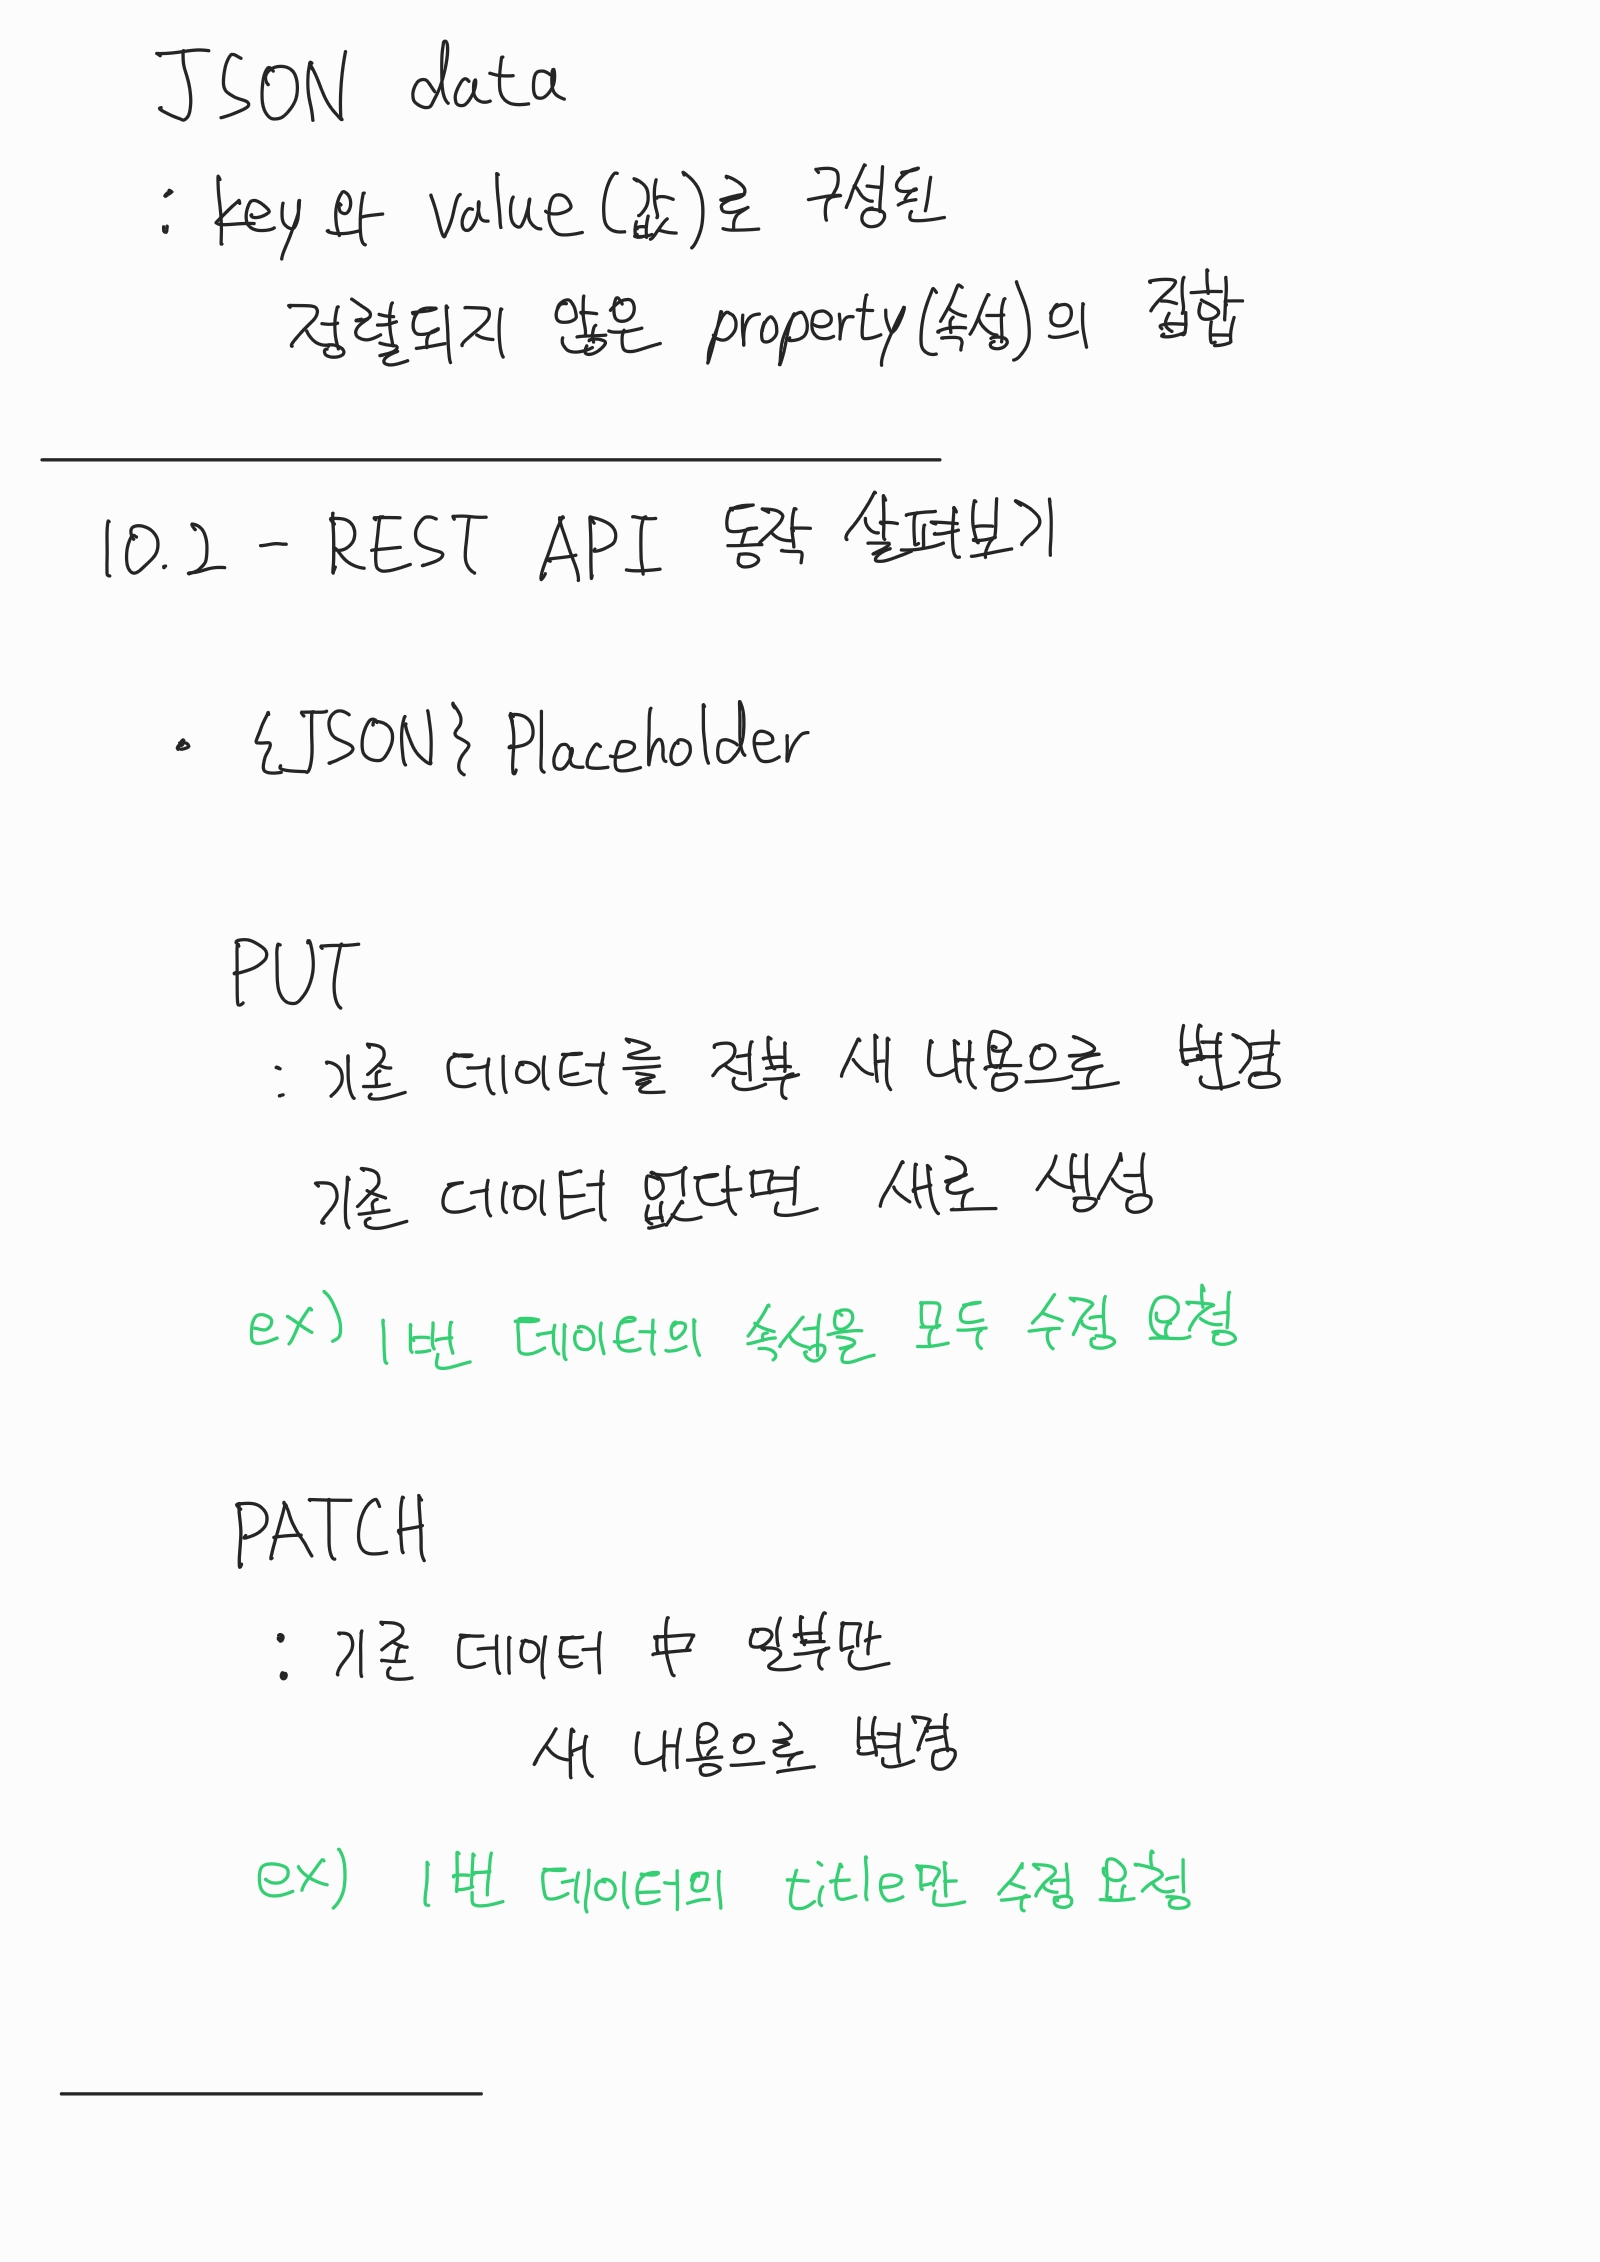 JSON data
: key와 value(값)로 구성된
정렬되지 않은 property(속성)의 집합
10.2 - REST API 동작 살펴보기
• {JSON} Placeholder
PUT
: 기존 데이터를 전부 새 내용으로 변경
기존 데이터 없다면 새로 생성
ex) 1번 데이터의 속성을 모두 수정 요청
PATCH
: 기존 데이터 中 일부만
새 내용으로 변경
ex) 1번 데이터의 title만 수정 요청